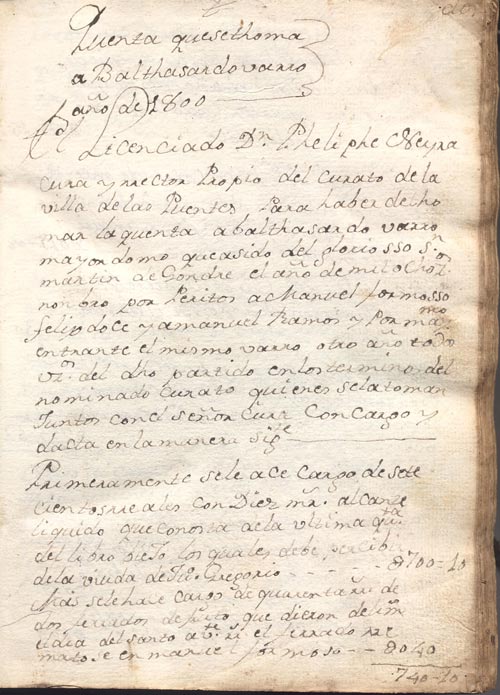 Quenta quesethoma
a Balthasardovarro
año de 1800
El Licenciado Dn. Pheliphe Neyra
cura y rrector Propio del curato dela
villa delas Puentes Para haber detho
mar laquenta abalthasardo varro
mayordomo queasido del gloriosso Sn.
martin de Gondre el año demilocho
nonbro por Peritos aManuel formosso
felipdoce yamanuel Ramos y Por
entrante el mismo varro otro año
vz. del dho partido enlosterminos del
nominado Curato quienes selatoman
Juntos conel señor Cura Concargo y
datta enlamanera Sigte
Primeramente sele ace Cargo desete
cientosrreales conDiez mrs. alcanze
liquido queconsta dela ultima qta.
del libro biejo los quales debe percibir
dela viuda de Gregorio - - - - 8700-10
Mas selehace cargo de quarenta rrs. de
dos ferrados que dieron de
del santo el ferrado rre
mato se en manuel formoso - - 8040
740-10